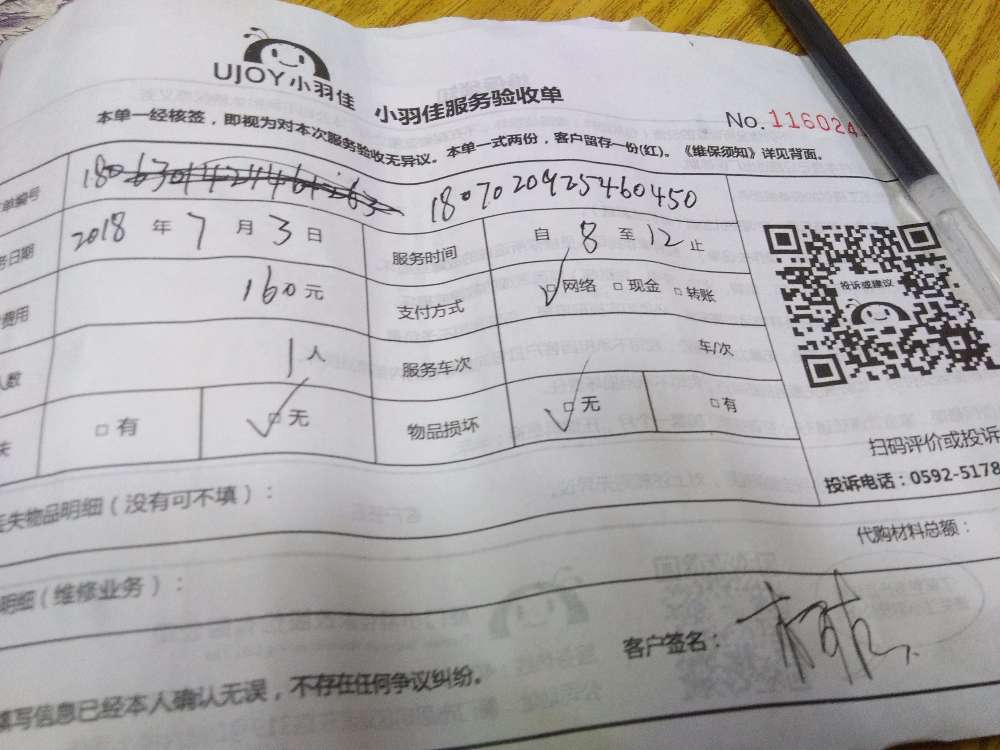 UJOY小羽佳
小羽佳服务验收单
No. 116024
本单一经核签，即视为对本次服务验收无异议。本单一式两份，客户留存一份(红)。《维保须知》详见背面。
单编号 1807020925460450
务日期 2018 年 7 月 3 日 服务时间 自 8 至 12 止
费用 160 元 支付方式 □网络 □现金 □转账
人数 1 人 服务车次 车/次
失 □有 □无 物品损坏 □无 □有
投诉或建议
扫码评价或投诉
投诉电话：0592-5178
丢失物品明细（没有可不填）：
代购材料总额：
明细（维修业务）：
客户签名：
填写信息已经本人确认无误，不存在任何争议纠纷。